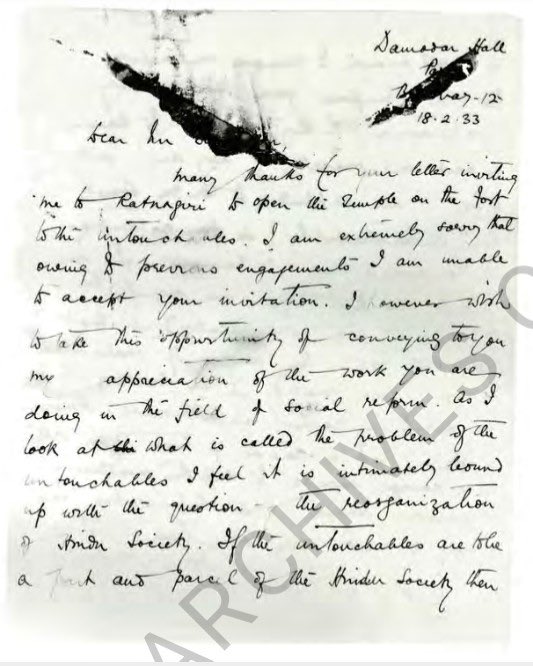 Damodar Hall
12
18.2.33
Dear Mr
many thanks for your letter inviting
me to Ratnagiri to open the Temple on the fort
to the untouchables. I am extremely sorry that
owing to previous engagements I am unable
to accept your invitation. I however wish
to take this opportunity of conveying to you
my appreciation of the work you are
doing in the field of social reform. As I
look at what is called the problem of the
untouchables I feel it is intimately bound
up with the question the reorganization
of Hindu Society. If the untouchables are to be
a part and parcel of the Hindu Society then
ARCHIVES